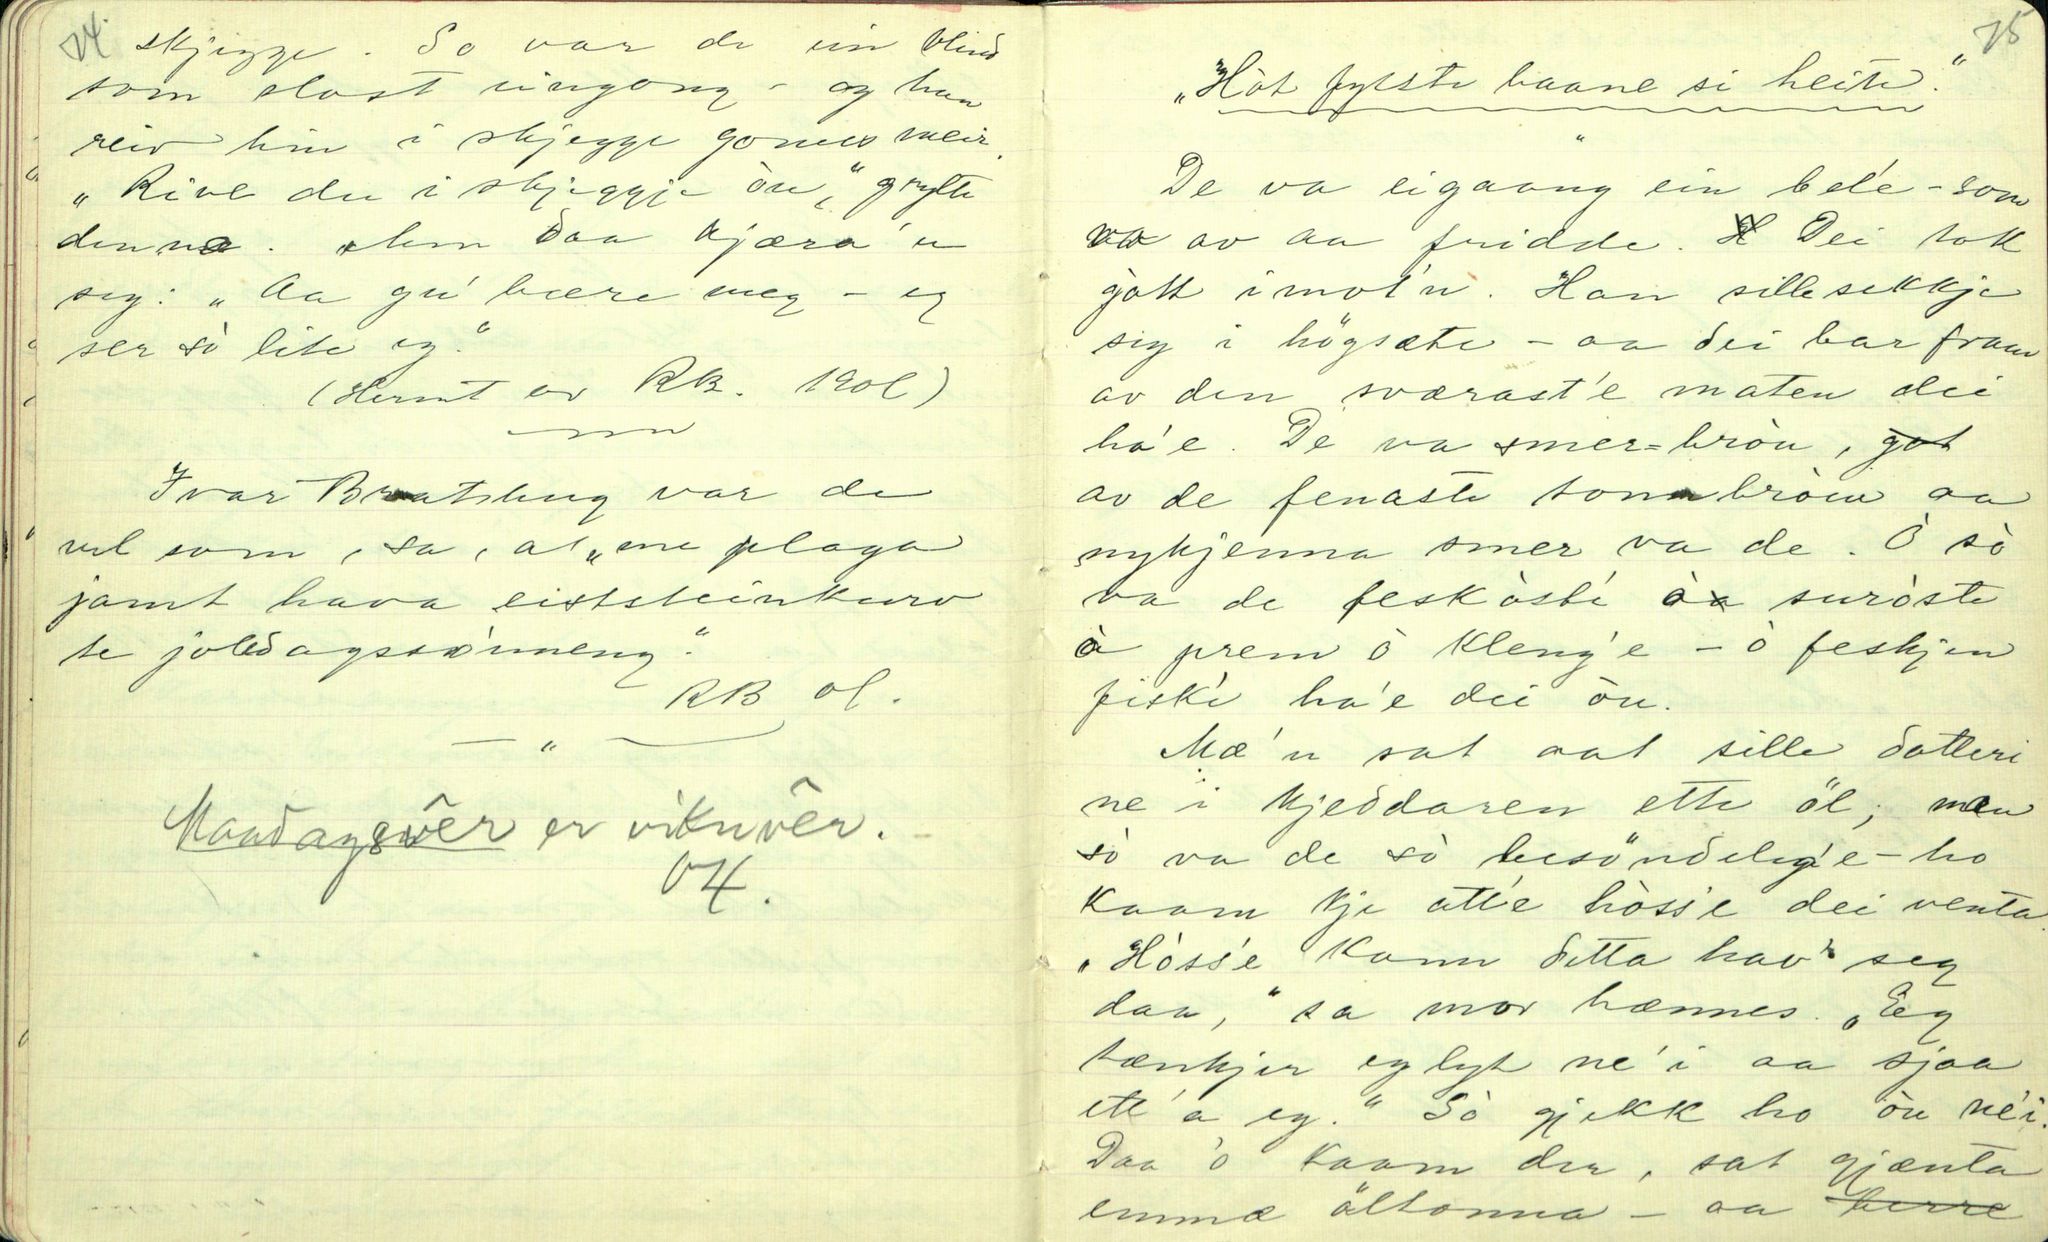 74.
skjegge. So var de ein blind
som slost eingong - og han
reiv hin i skjegge gonnw meir.
"Rive du i skjeggje òu," grylte
denna. Men daa kjæra 'n
seg: "Aa gu' bære meg - eg
ser sò lite eg."
(Hermt av RB. 1901)
Ivar Bratsberg var de
vel som, sa, at "me plaga
jamt hava eitsteinkurv
te joledagssómeng."
RB 01.
Maadagsvêr er vikuvêr.
04.
75
"Hòt fysste baane si heite."
De va eigaang ein bel'e - som
va av aa fridde. Dei tok
gòtt imot'n. Han sille sekkje
seg i högsæte - aa dei bar fram
av den sværast'e maten dei
ha'e. De va smer=bròu, got
av de fenaste tonnbròu aa
nykjenna smer va de. Ò sò
va de feskòst'e òa suròste
ò prem ò kleng'e - ò feskjen
fisk'e ha'e dei òu.
Mæ'n sat aat sille dotteri
ne i kjeddaren ette öl; men
sò va de sò besöndelig'e - ho
kaam kje att'e hòss'e dei venta.
"Hòss'e kann detta hav' seg
daa," sa mor hænnes. "Eg
tænkjer eg lyt ne' i aa sjaa
ett' a eg." Sò gjekk ho òu ne'i.
Daa 'o kaam der, sat gjænta
emmæ öltonna - aa berre